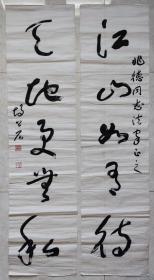 兆德同志法家正之
江山如有待
天地更無私